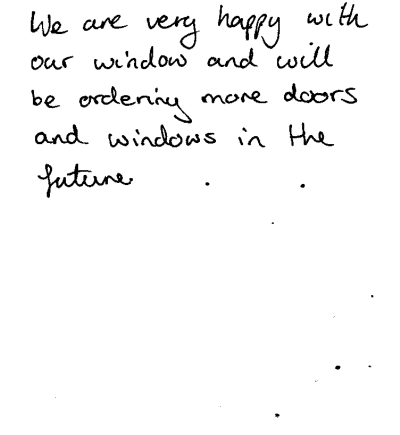 We are very happy with
our window and will
be ordering more doors
and windows in the
future.